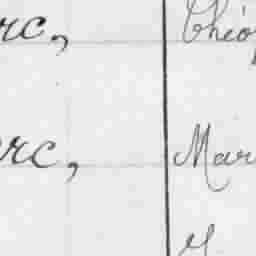 rc, Théo
erc, Mar